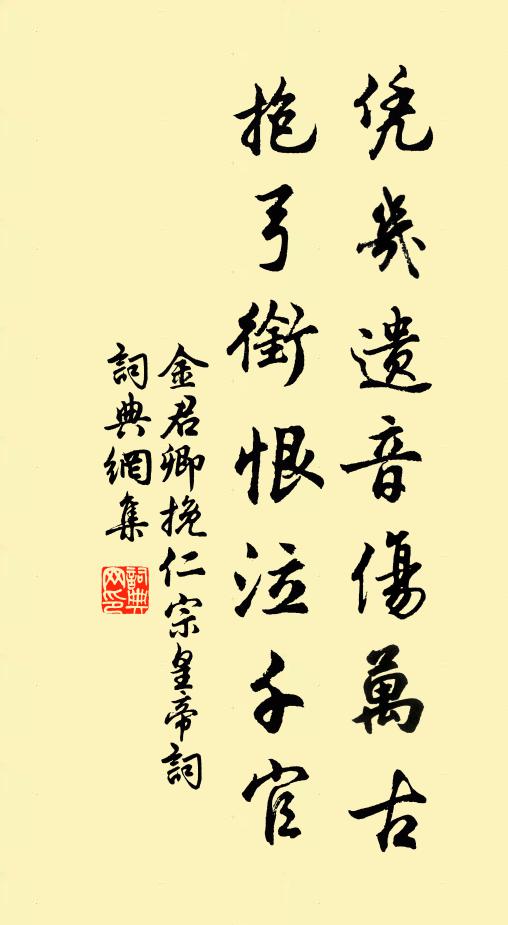 凭幾遺音傷萬古
抱弓銜恨泣千官
金君卿挽仁宗皇帝詞
詞典網集
詞典網印